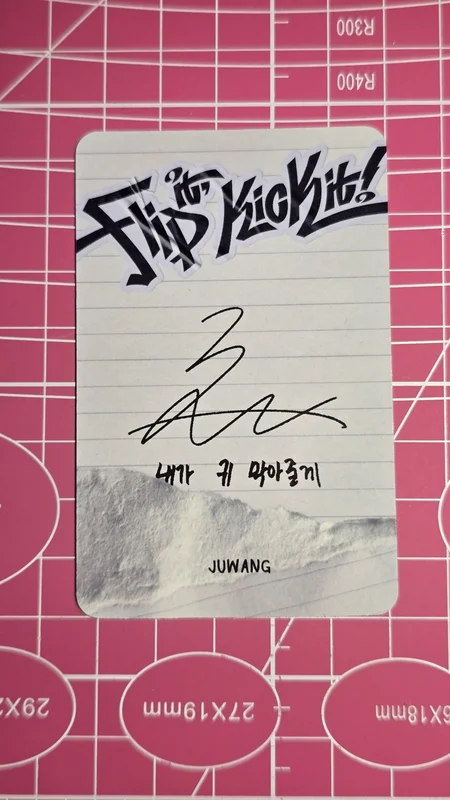 R300
R400
Flip it, Kick it!
내가 귀 막아줄게
JUWANG
29X2
27X19mm
6X18mm